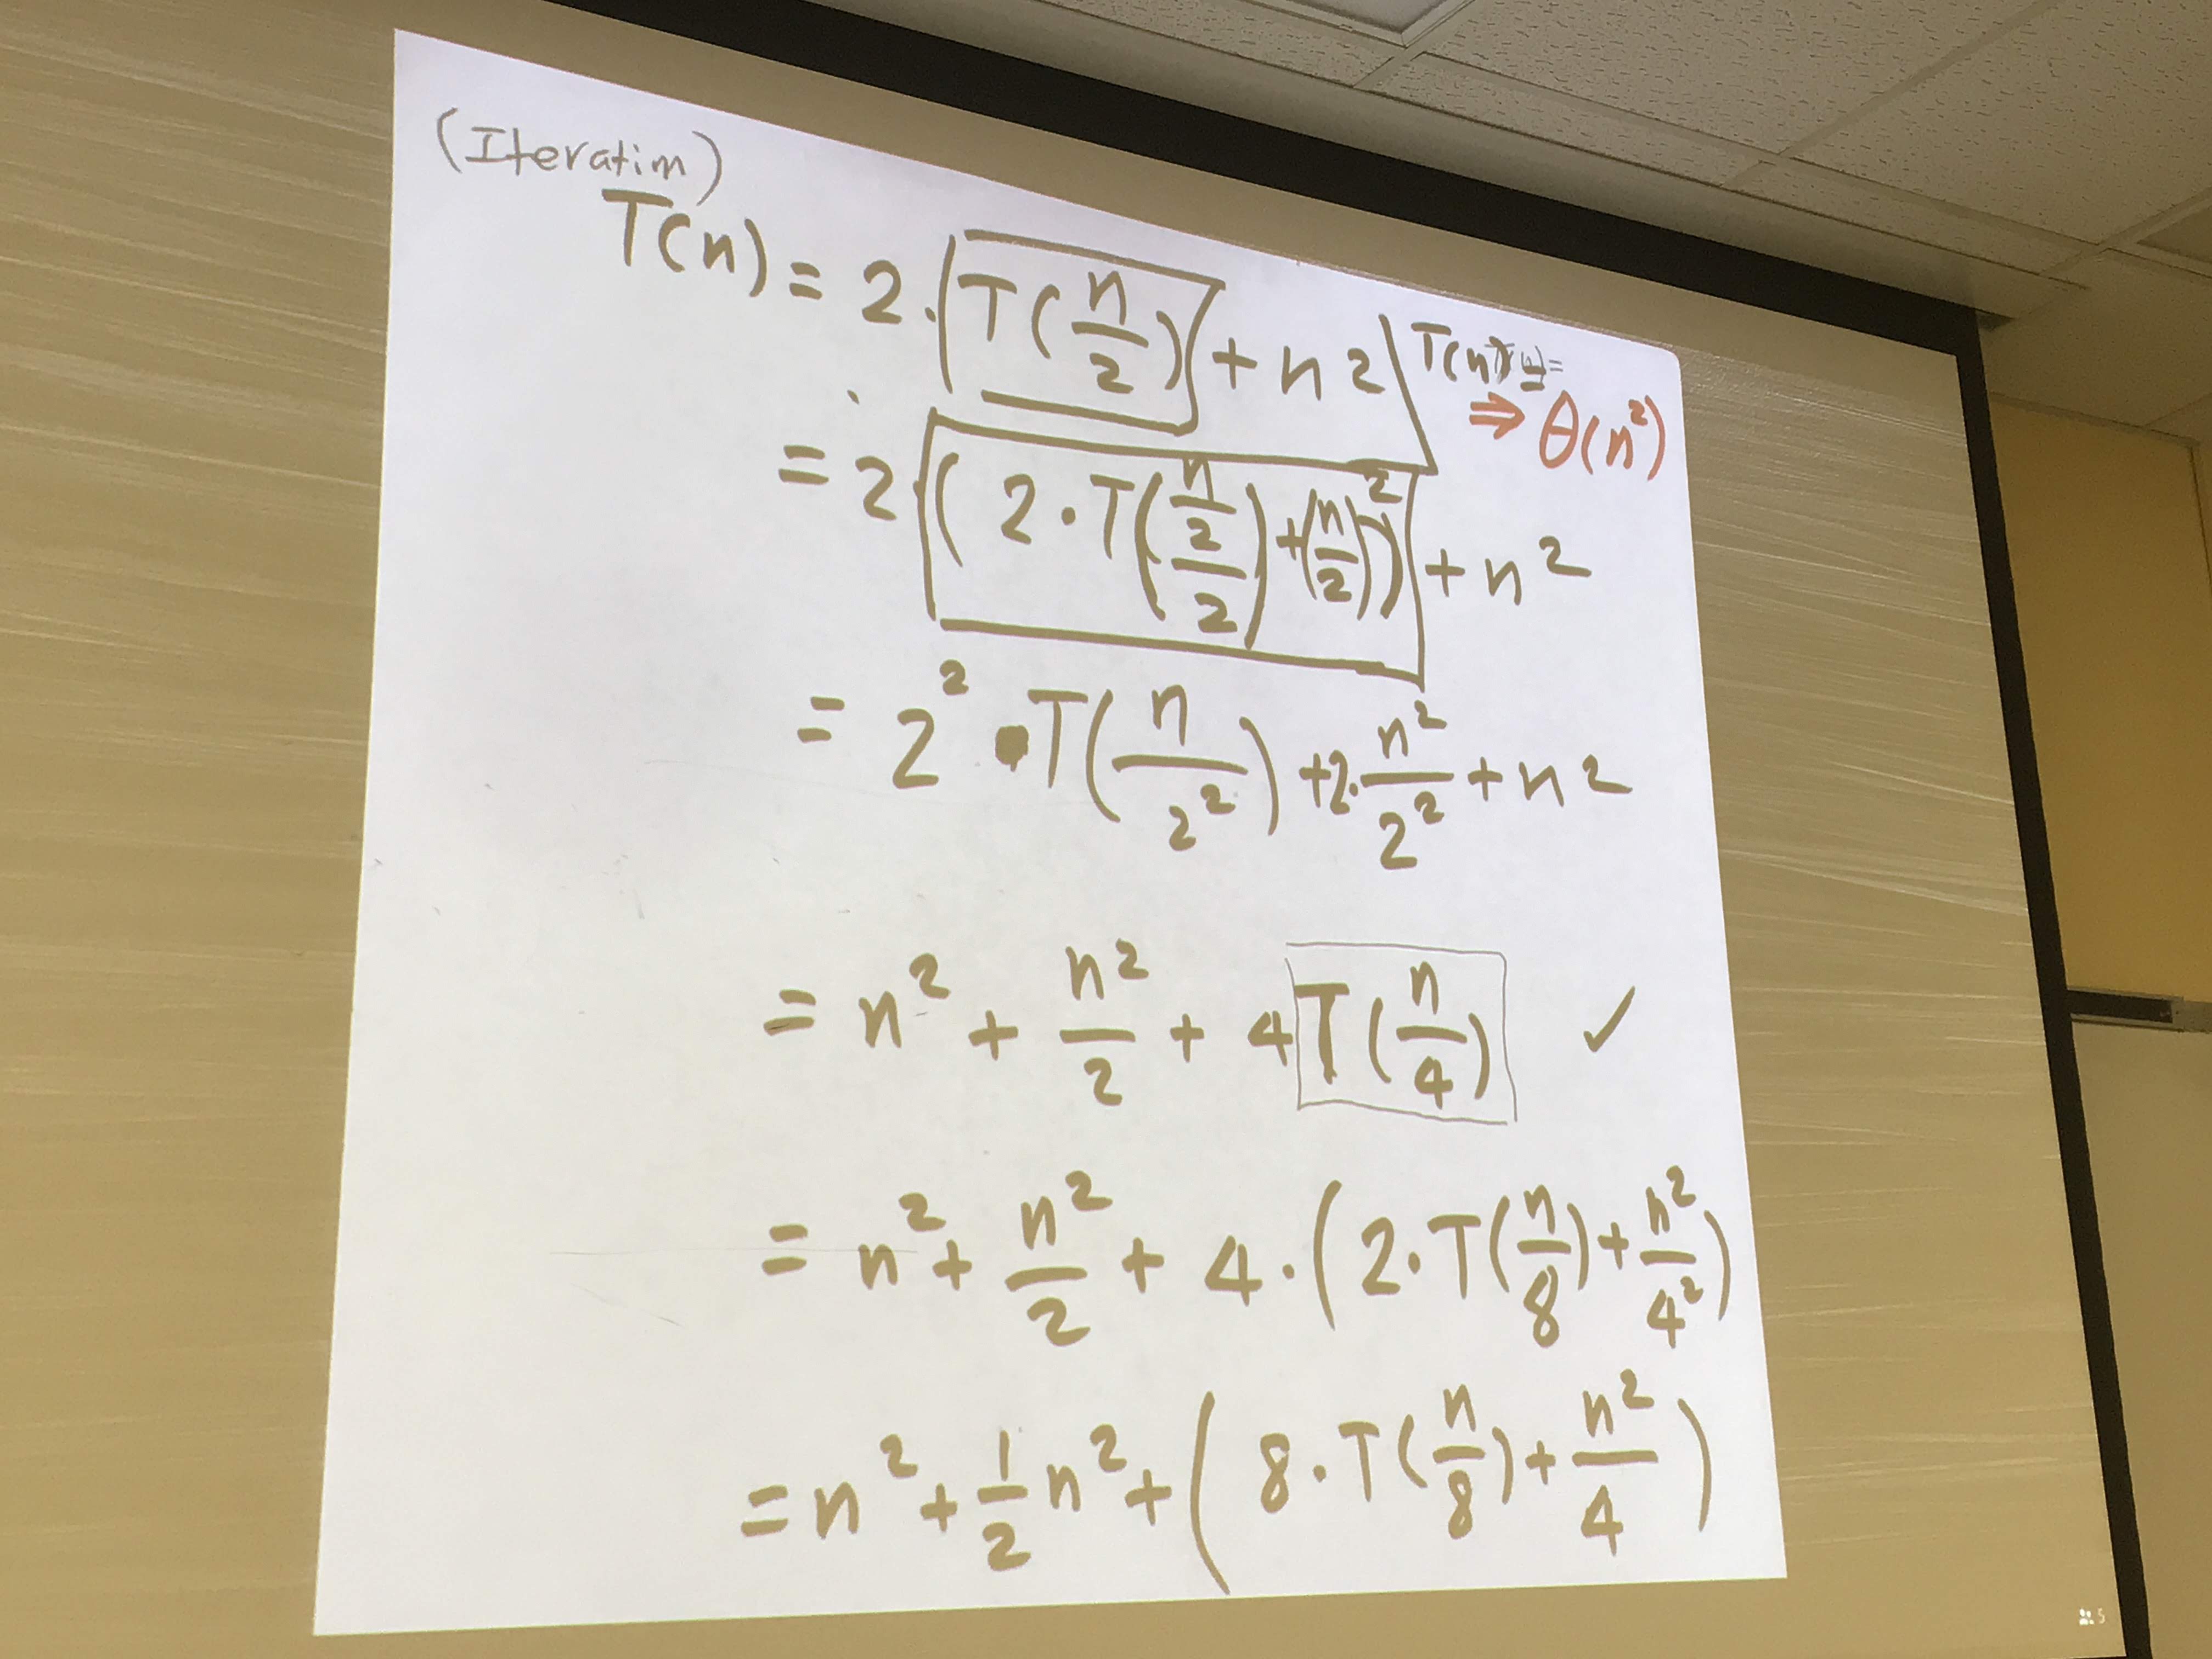 (Iteration)
T(n) = 2 · T(n/2) + n²
T(n)
⇒ θ(n²)
= 2 (2 · T((n/2)/2) + (n/2)²) + n²
= 2² · T(n/2²) + 2 · n²/2² + n²
= n² + n²/2 + 4 T(n/4) ✓
= n² + n²/2 + 4 · (2 · T(n/8) + n²/4²)
= n² + 1/2 n² + (8 · T(n/8) + n²/4)
5